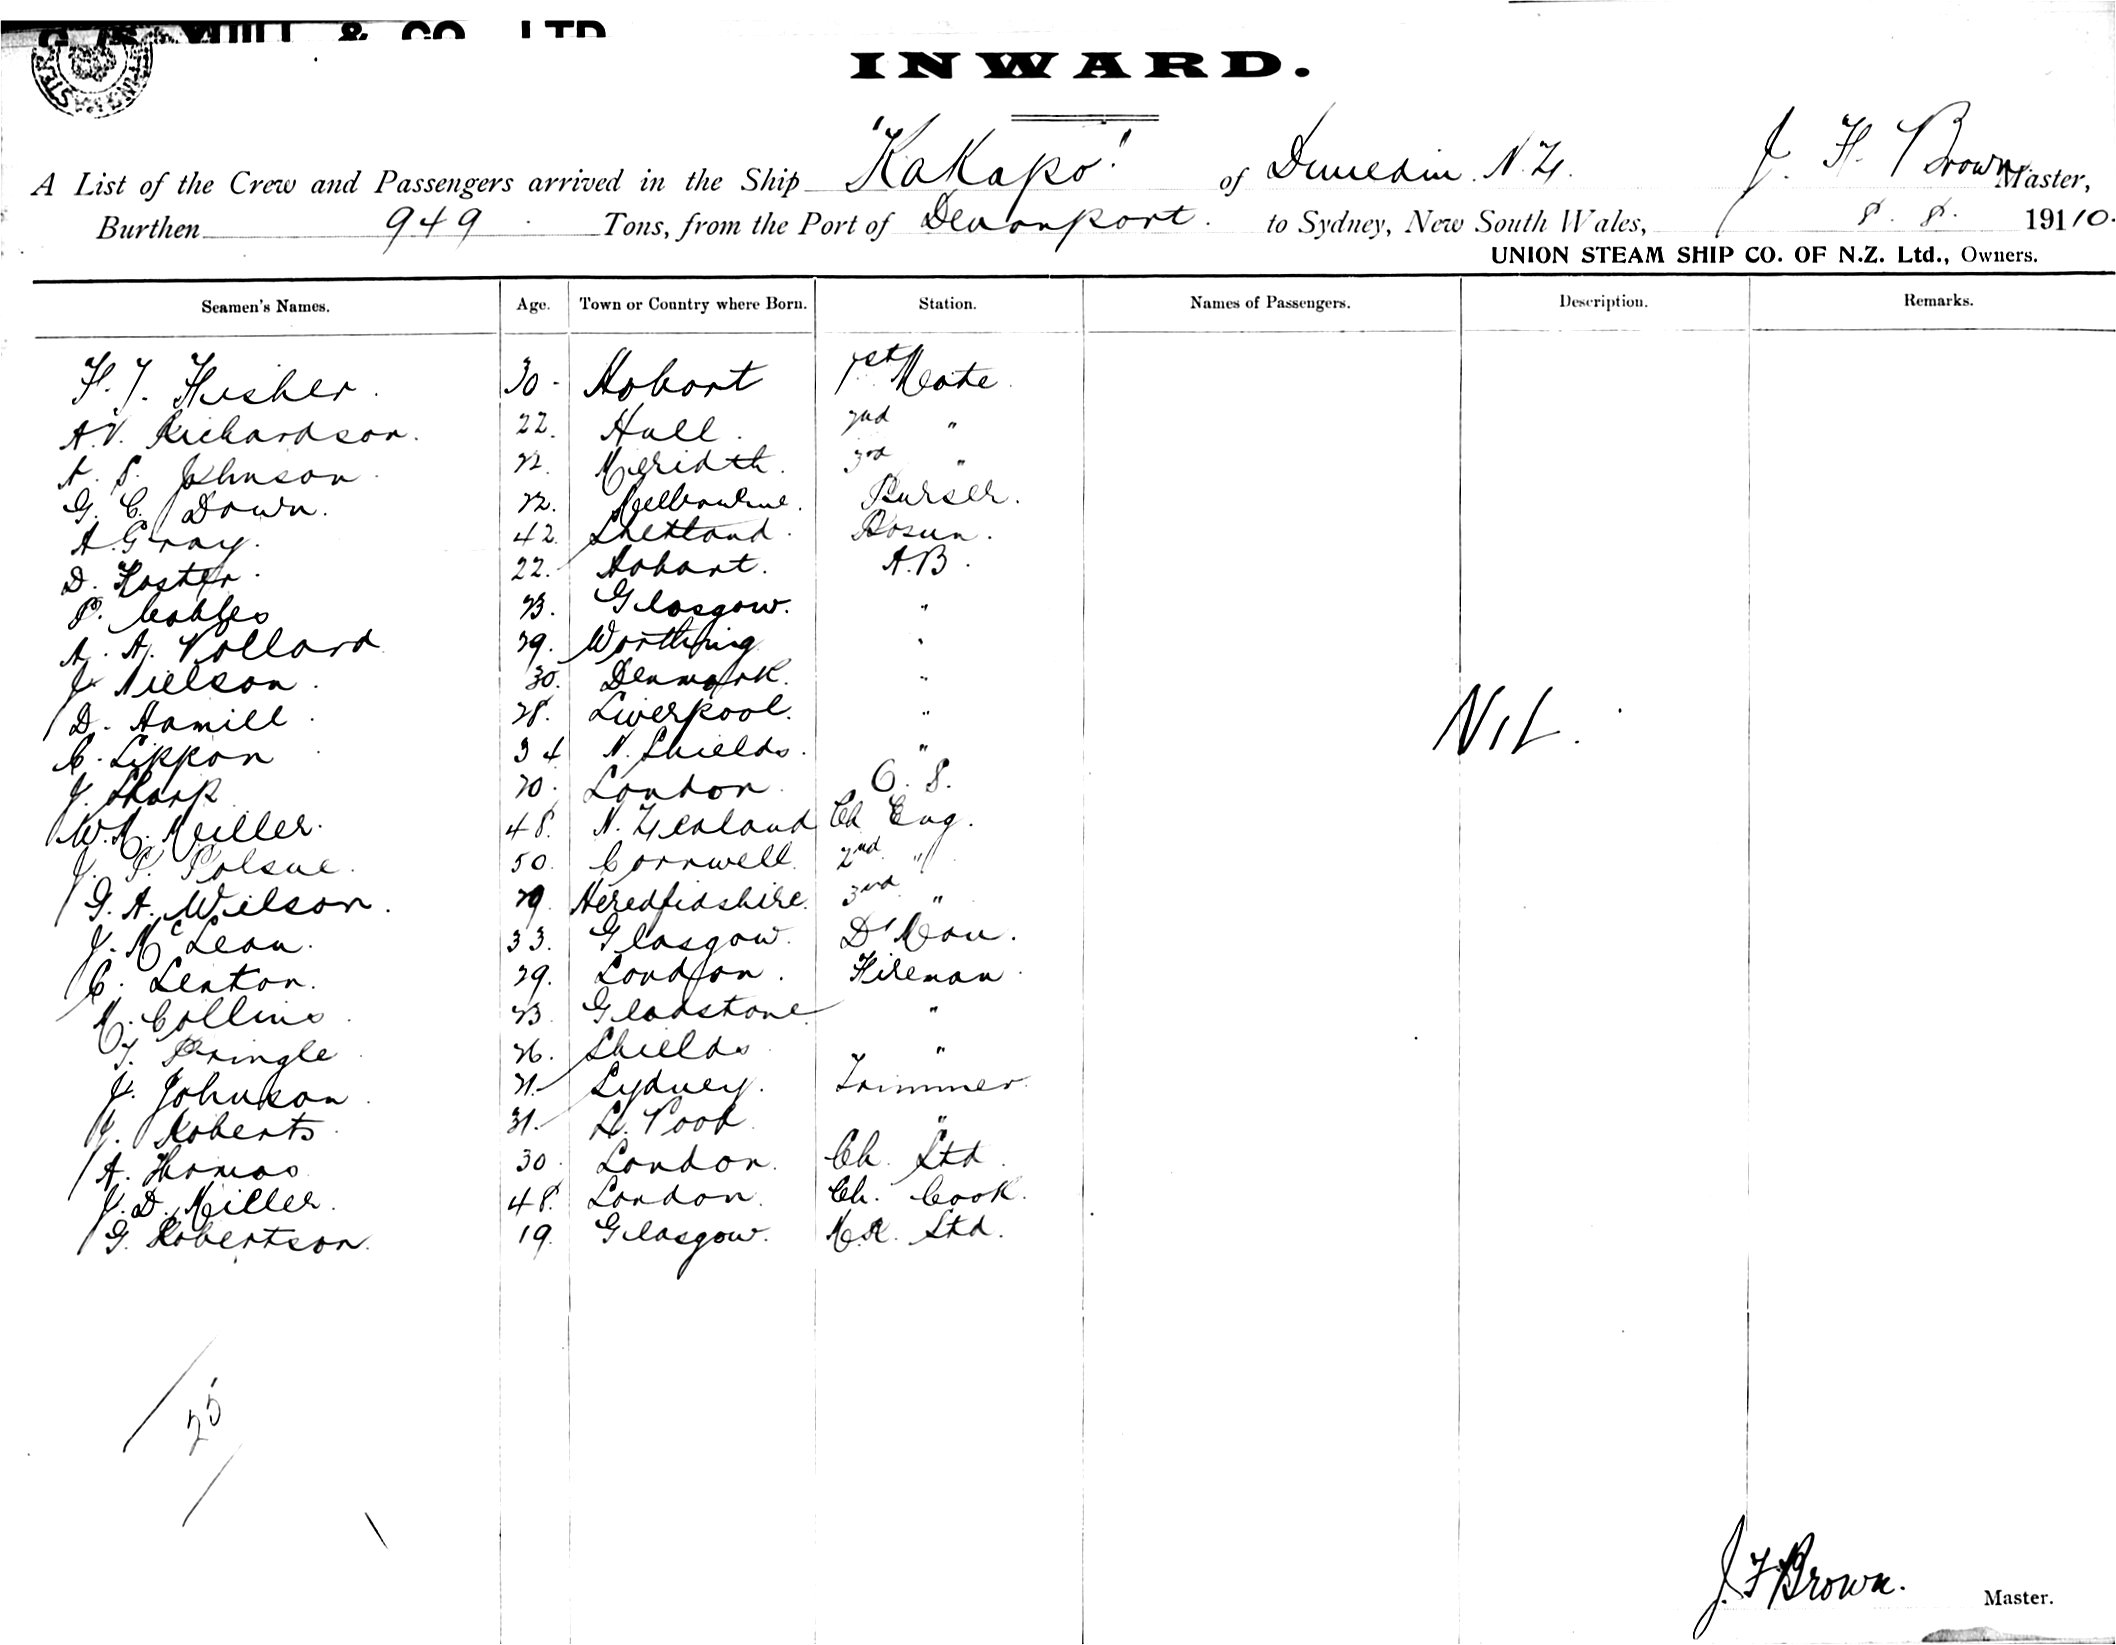 & CO. LTD
INWARD.
A List of the Crew and Passengers arrived in the Ship "Kakapo" of Dunedin. N.Z. J. F. Brown Master,
Burthen 949 Tons, from the Port of Devonport. to Sydney, New South Wales, 8. 8. 19110.
UNION STEAM SHIP CO. OF N.Z. Ltd., Owners.
Seamen's Names. Age. Town or Country where Born. Station. Names of Passengers. Description. Remarks.
F. J. Fisher. 30 - Hobart 1st Mate.
A. V. Richardson. 22. Hull. 2nd "
A. S. Johnson. 22. Meridth. 3rd "
G. C. Down. 22. Melbourne. Purser.
A. Gray. 42. Shetland. Bosun.
D. Foster. 22. Hobart. A.B.
P. 23. Glasgow. "
A. A. Pollard 29. Worthing "
J. Nielson. 30. Denmark. "
D. Hamill. 28. Liverpool. "
C. Sippon 34 N. Shields. "
J. Sharp 20. London. O. S.
W. M. Miller. 48. N. Zealand Ch Eng.
J. P. Polsue. 50. Cornwell. 2nd "
G. A. Wilson. 29. Heredfidshire. 3rd "
J. McLean. 33. Glasgow. D' Man.
C. Lenton. 29. London. Fireman.
M. Collins. 23. Gladstone "
T. Pringle 26. Shields "
J. Johnson. 21. Sydney. Trimmer.
J. Roberts. 31. L. Pool "
A. Thomas 30. London. Ch. Std.
J. D. Miller. 48. London. Ch. Cook.
G. Robertson. 19. Glasgow. M.R. Std.
NIL.
25
J. F Brown. Master.